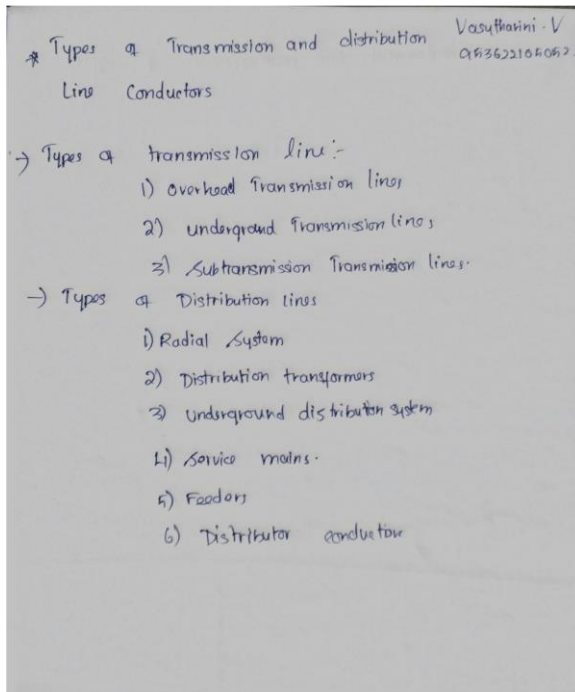 * Types of Transmission and distribution
Vasutharini. V
953622105052
Line Conductors
-> Types of transmission line :-
1) overhead Transmission lines
2) underground Transmission lines
3) Subtransmission Transmission lines.
-> Types of Distribution lines
1) Radial System
2) Distribution transformers
3) underground distribution system
4) Service mains.
5) Feeders
6) Distributor conductor